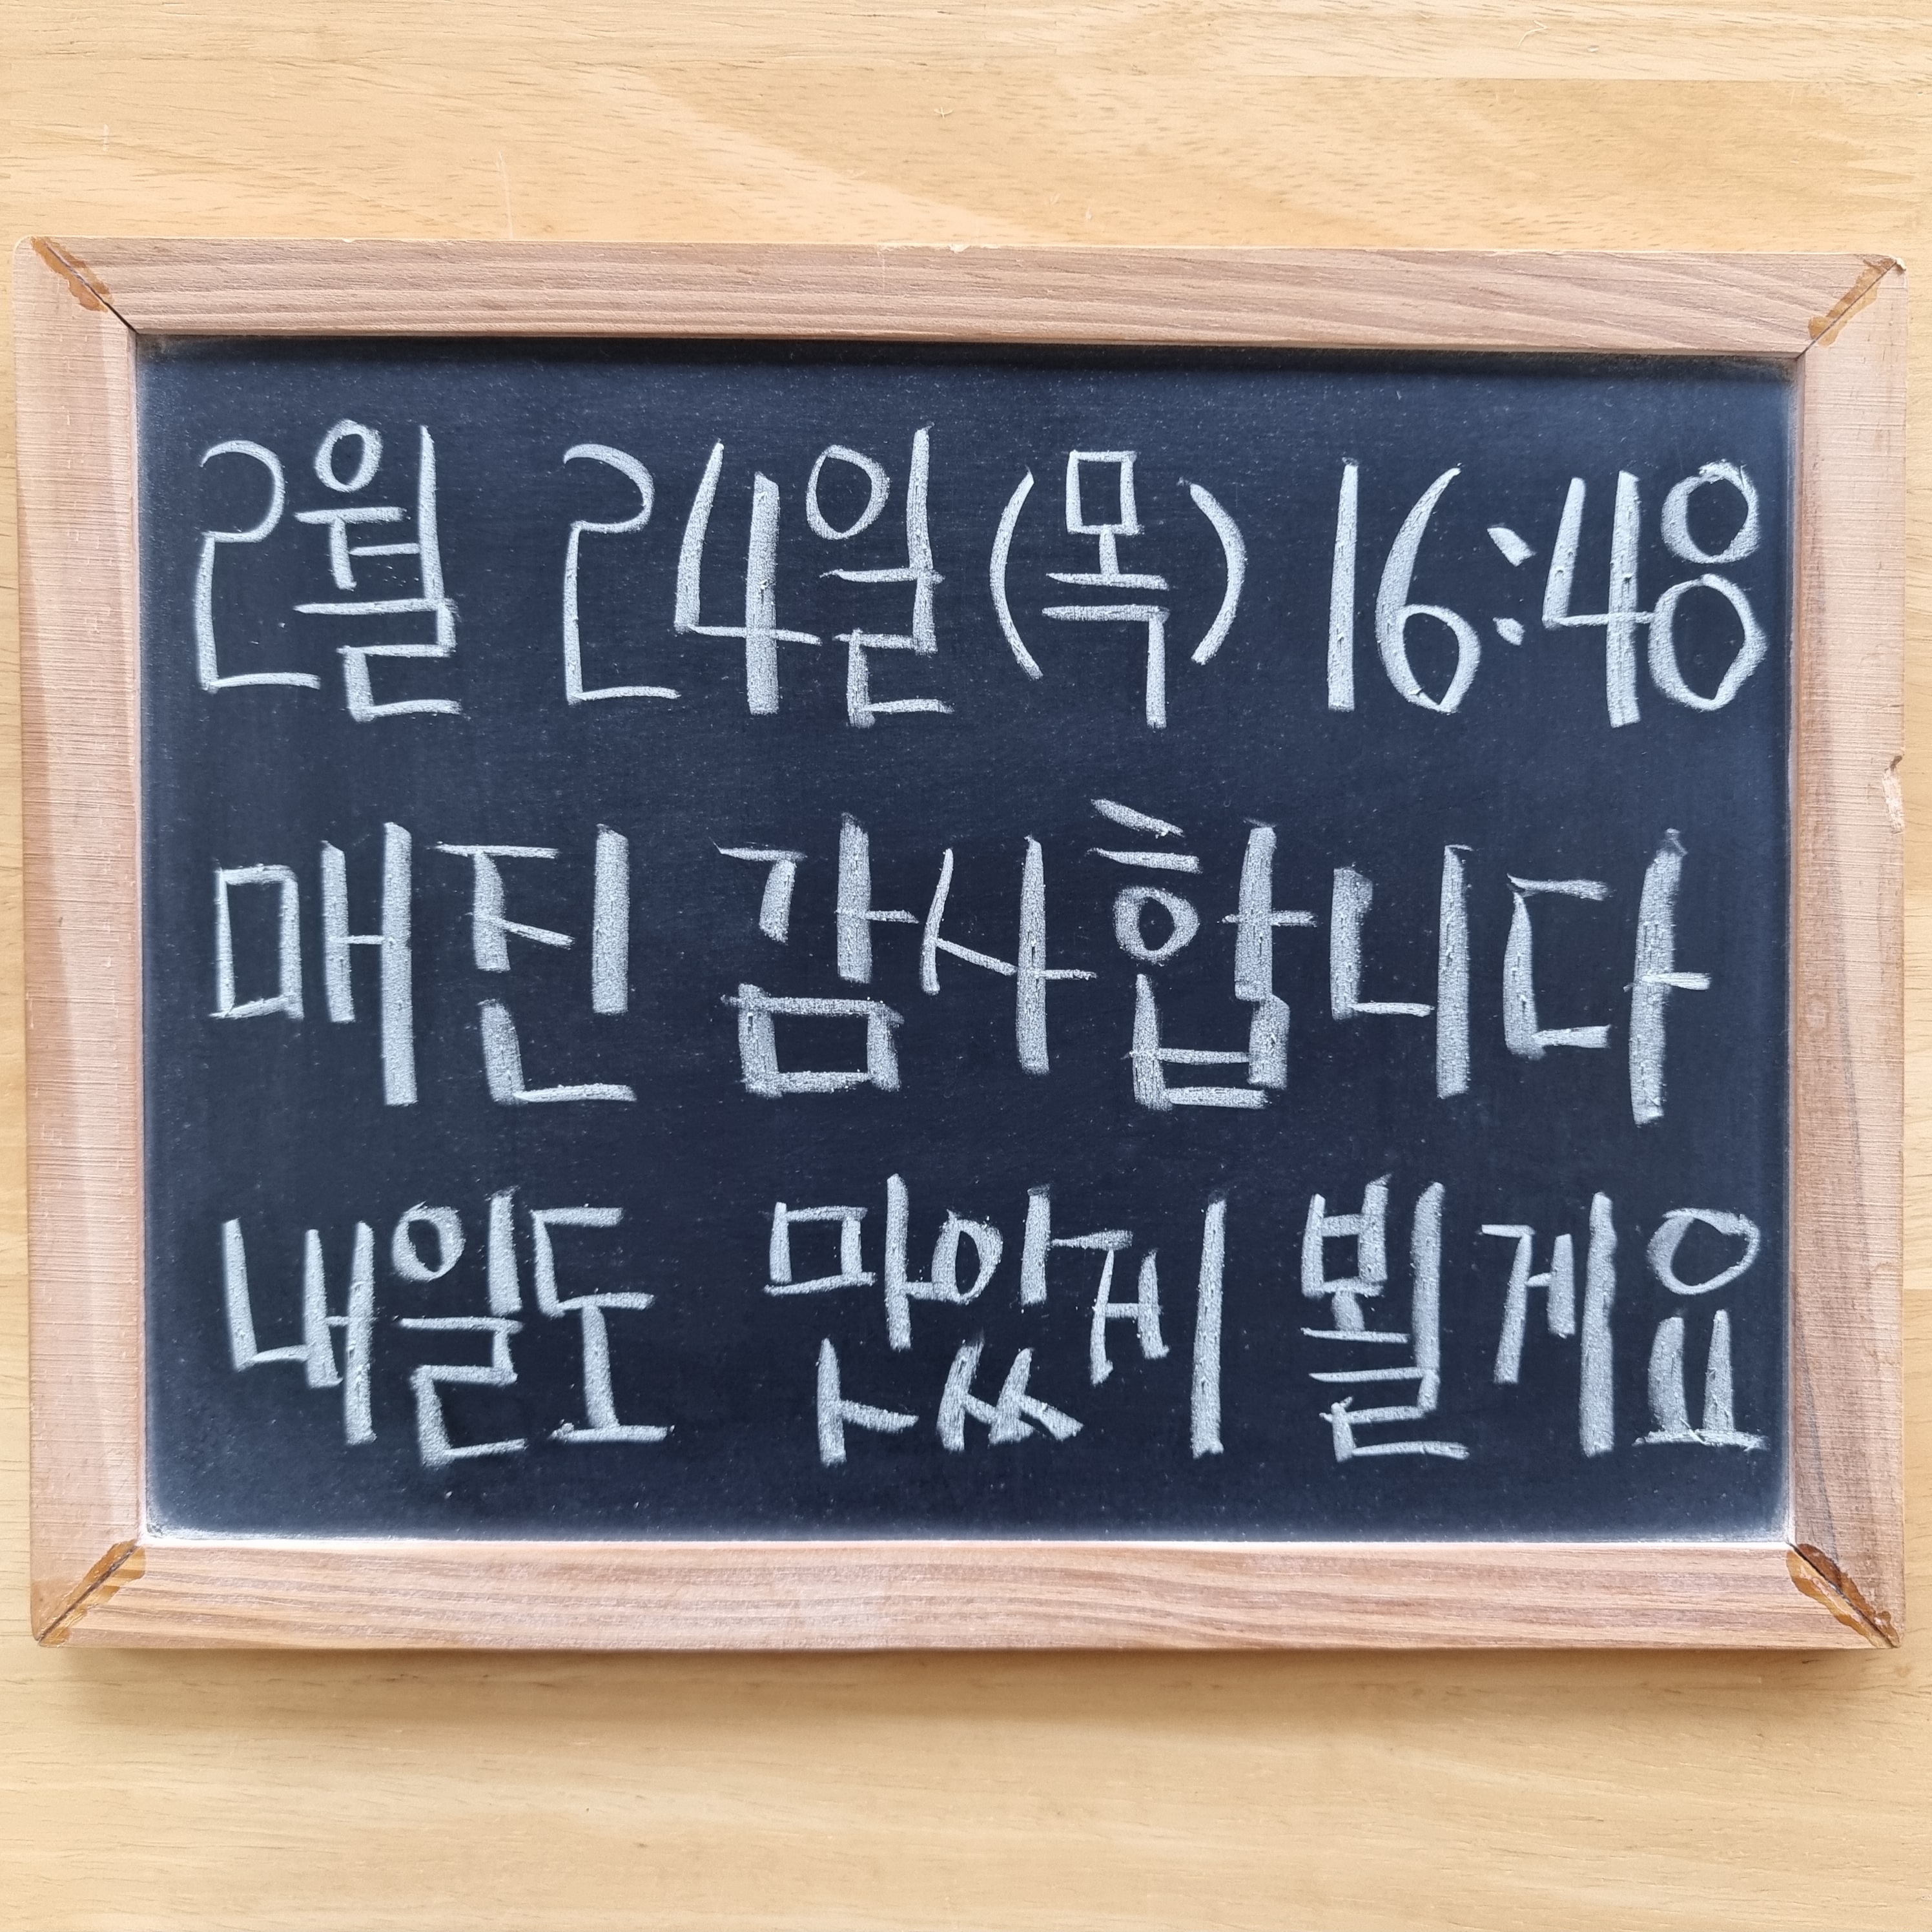 2월 24일(목) 16:48
매진 감사합니다
내일도 맛있게 뵐게요